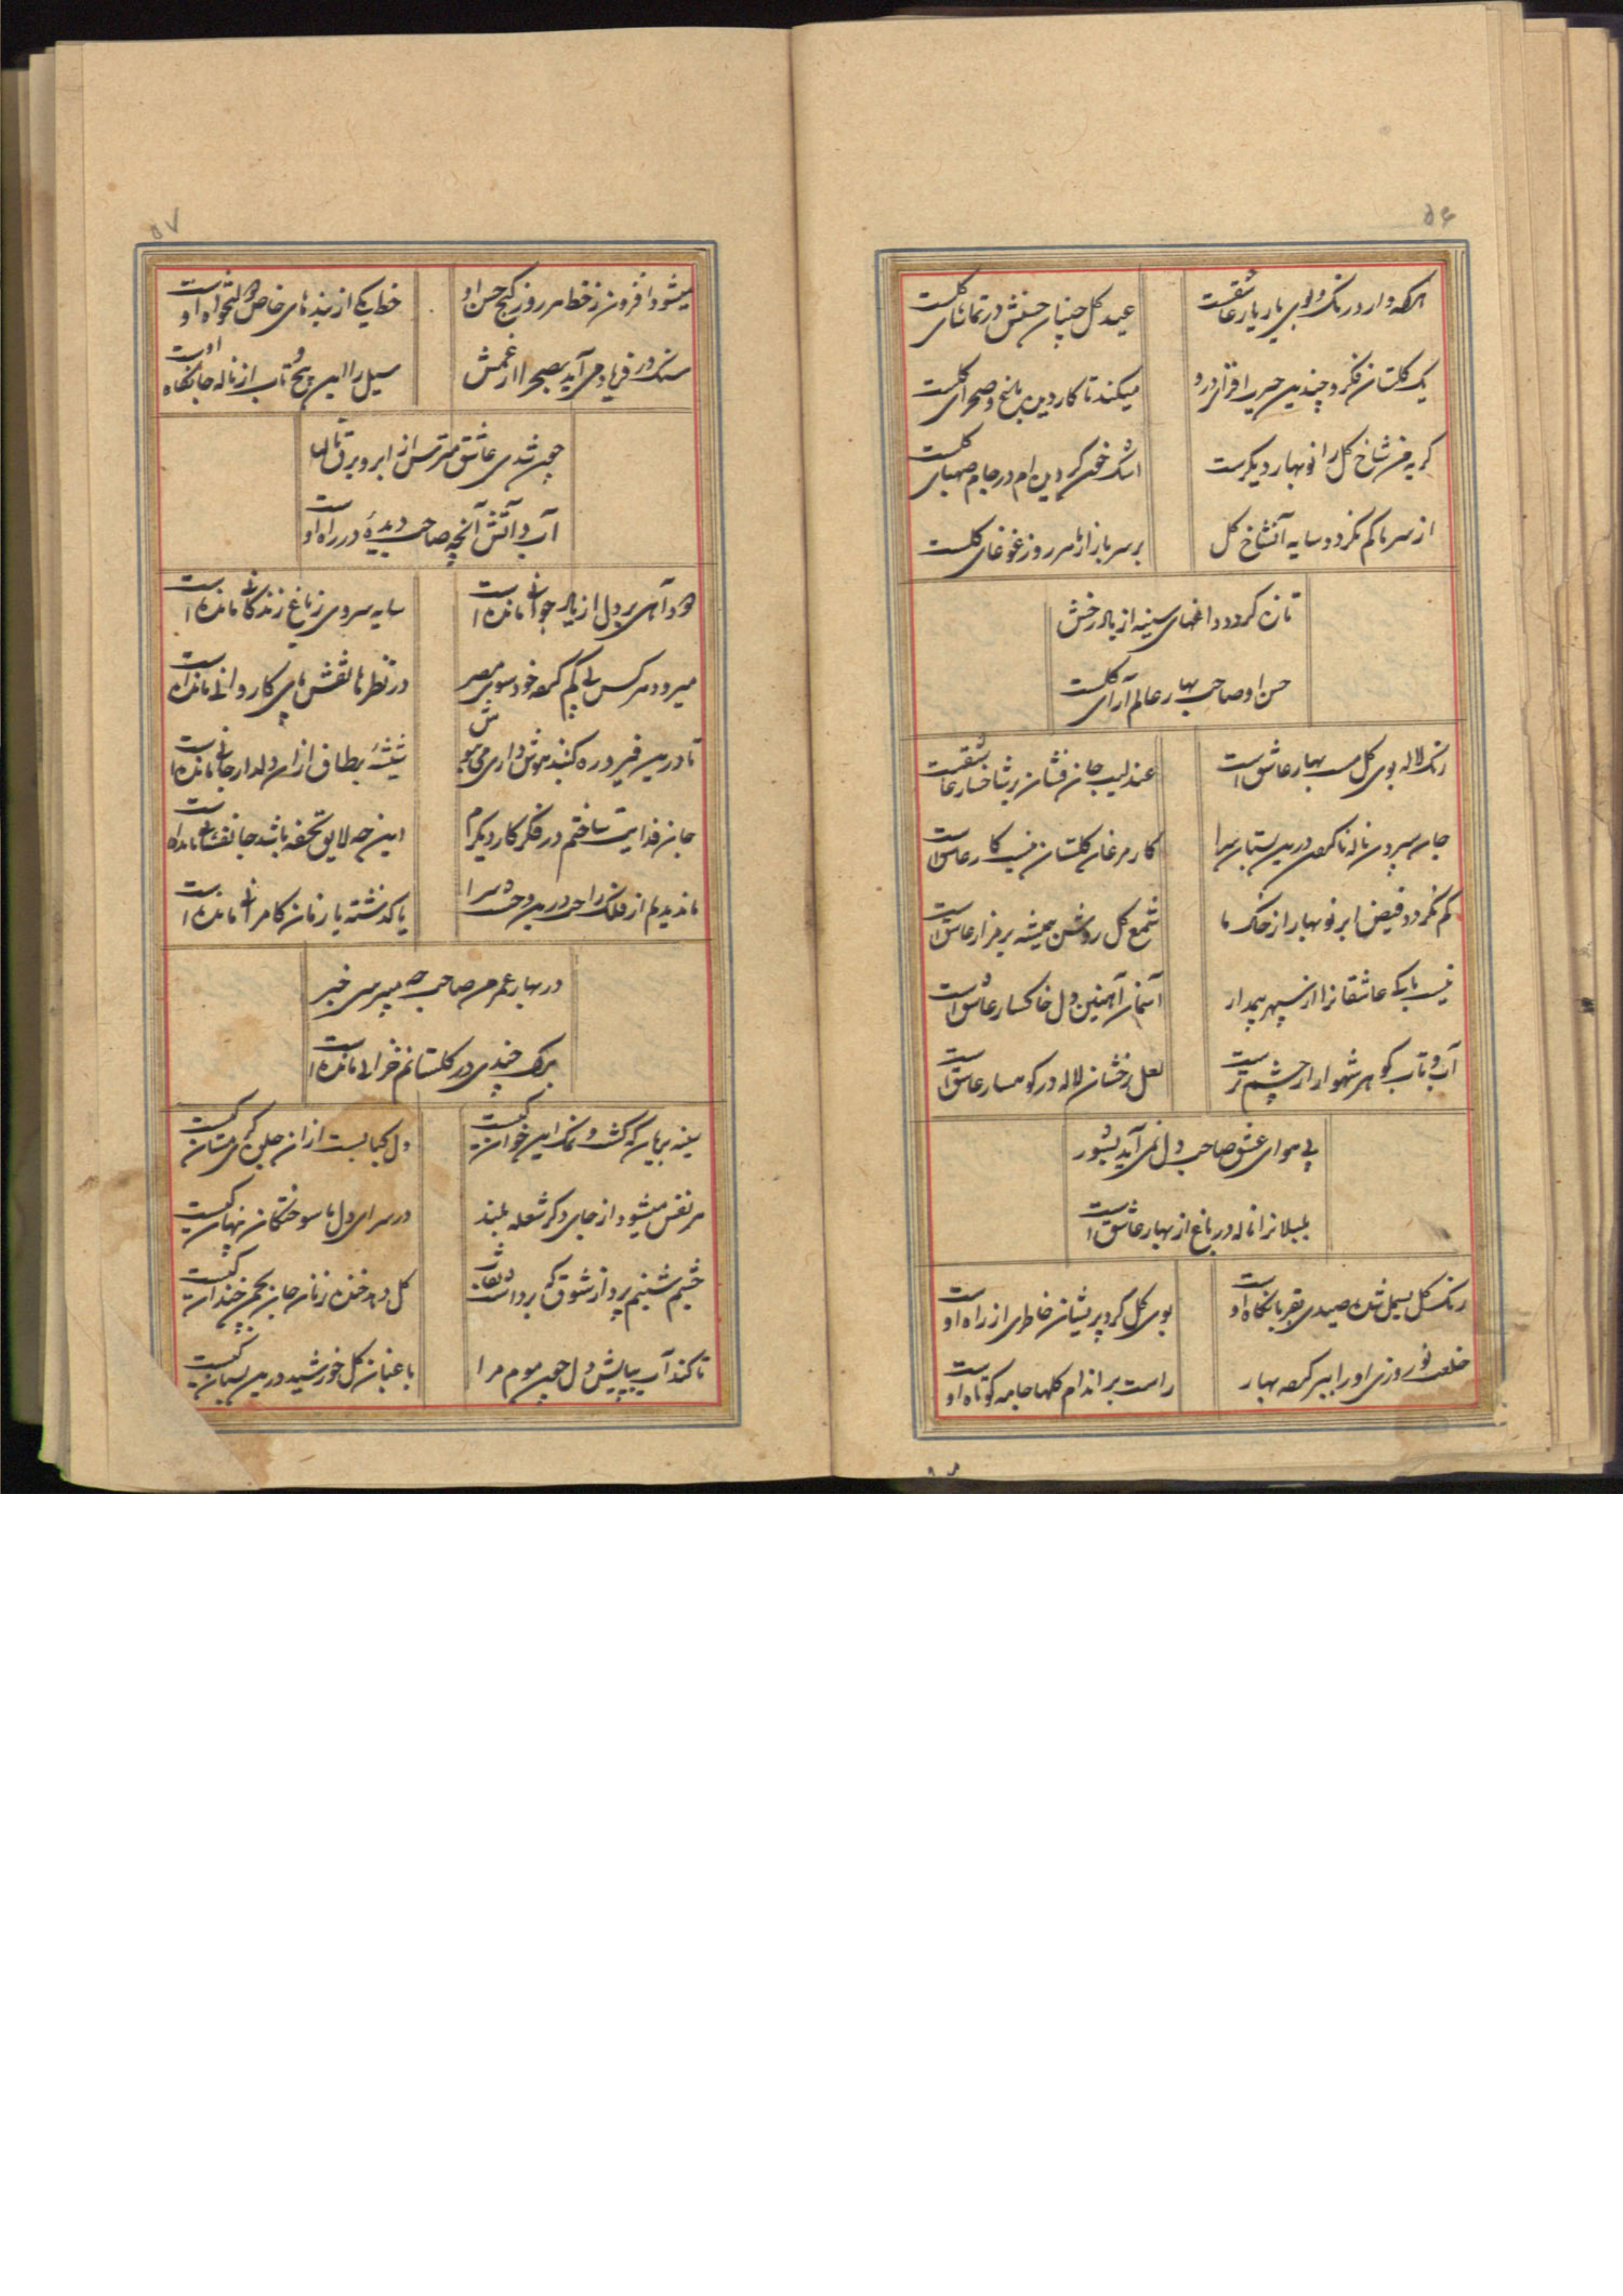 ۵۶
هرکه دارد رنگ و بوی یار یار عاشقست
عید کل چنان حسنش در تماشای کلست
یک کلستان فکر و چندین حیرت افزاید درو
میکند تا کار دین باغ و صحرای کلست
کریه من شاخ کل را نوبهار دیکرست
اشک خون کردیده ام در جام صهبای کلست
از سر ما کم نکردد سایه آن شاخ کل
بر سر بازارها هر روز غوغای کلست
تازه کردد داغهای سینه از یاد رخش
حسن او صاحب بهار عالم آرای کلست
رنک لاله بوی کل مست بهار عاشق است
عندلیب جان فشان بر شاخسار عاشقست
جان سپردن ناله ناکردن درین بستان سرا
کار مرغان کلستان نیست کار عاشق است
کم نکردد فیض ابر نوبهار از خاک ما
شمع کل روشن همیشه بر مزار عاشق است
نیست باکی عاشقانرا از سپهر بیمدار
آسمان آهنین دل خاکسار عاشق است
آب و تاب کوهر شهوار از چشم ترست
لعل رخشان لاله در کوهسار عاشق است
بی هوای عشق صاحب دل نمی آید بشور
بلبلانرا ناله در باغ از بهار عاشق است
رنک کل بسمل شده صیدی بقربانکاه او
بوی کل کرد پریشان خاطری از راه اوست
خلعت نوروزی او را ببر کرده بهار
راست بر اندام کلها جامه کوتاه اوست
۵۷
میشود افزون ز خط هر روز کنج حسن او
خط یکی از بنده های خاص دلخواه اوست
سنک در فریاد می آید بصحرا از غمش
سیل را این پیچ و تاب از ناله جانکاه اوست
چون شدی عاشق مترس از ابر و برق ناله
آب و آتش آنچه صاحب دیده در راه اوست
دود آهی بر دل از یاد جوانی مانده است
سایه سروی ز باغ زندکانی مانده است
میرود هر کس بی کم کرده خود سوی مصر
در نظرها نقش پای کاروانی مانده است
تا درین فیروزه کنبد هوش داری می بنوش
شیشه بطاق از آن دلدار جانی مانده است
جان فدایت ساختم در فکر کار دیکرم
این چه لایق تحفه باشد جانفشانی مانده است
ما ندیدیم از فلک راحت درین وحشت سرا
یا کذشته یا زمان کامرانی مانده است
در بهار عمر من صاحب چه میپرسی خبر
برک چندی در کلستانم خزانی مانده است
سینه بریان که کشت و نمک این خوان کیست
دل کبابست از آن جلوه کری مستان کیست
هر نفس میشود از جای دکر شعله بلند
در سرای دل ما سوختکان پنهان کیست
چشم شبنم پرد از شوق که برداشت نقاب
کل دهد خنده زنان جان بچمن خندان کیست
تا کند آب بیاپیش دل چون موم مرا
باغبان کل خورشید درین بستان کیست